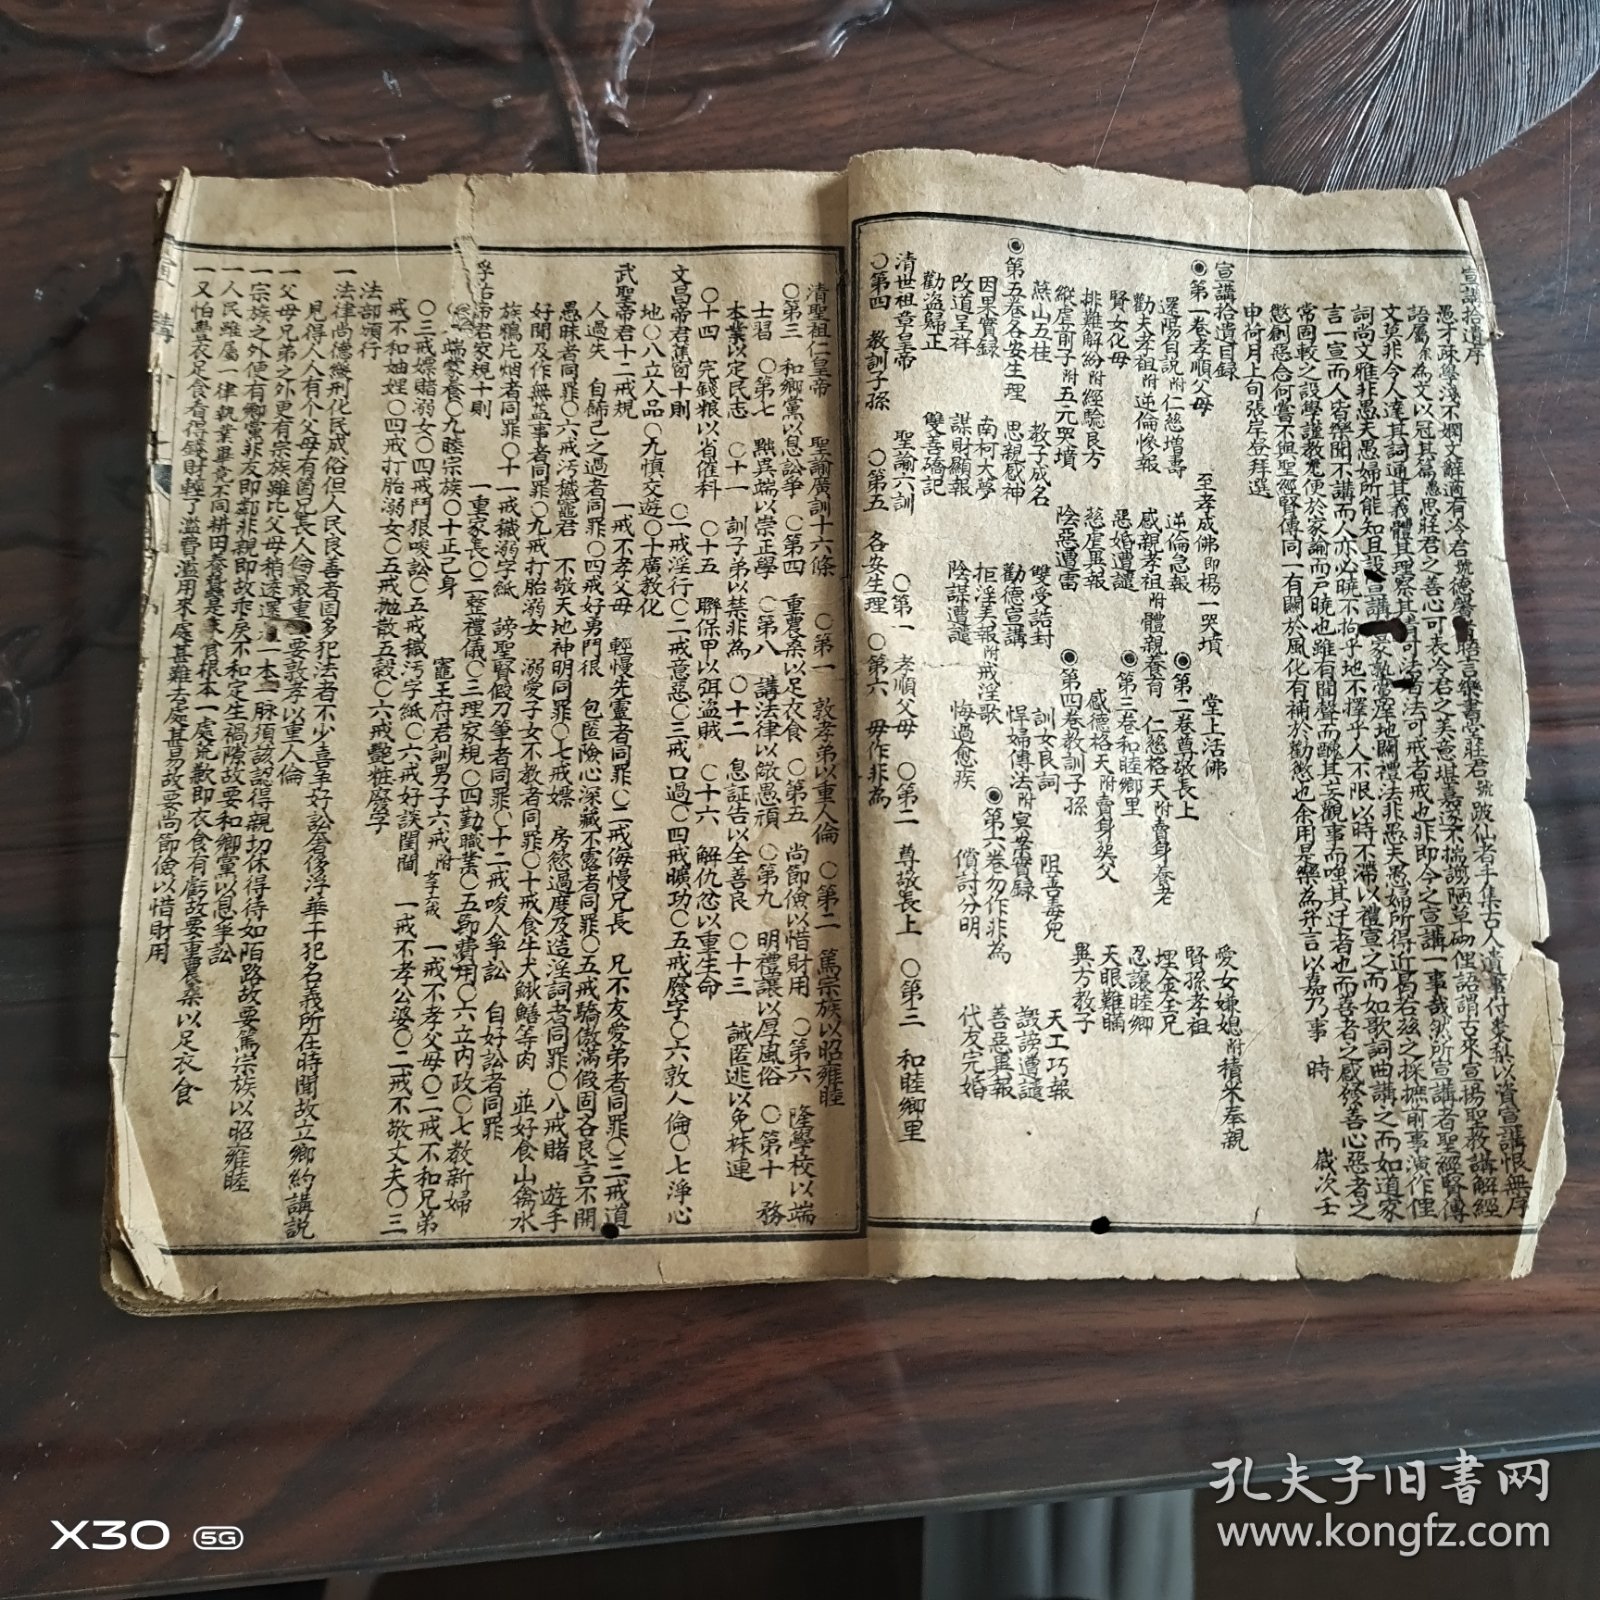 宣講拾遺序
愚才疎學淺不嫻文辭適有冷君號德馨者晤言樂書堂莊君號跛仙者手集古人遺事付棗梨以資宣講恨無序
語屬余為文以冠其篇愚思莊君之善心可表冷君之美意堪嘉遂不揣譾陋草砌俚語謂古來宣揚聖教講解經
文莫非令人達其詞通其義體其理察其書可法者法可戒者戒也非即今之宣講一事哉然所宣講者聖經賢傳
詞尚文雅非愚夫愚婦所能知且設宣講
言一宣而人皆樂聞不講而人亦必曉不拘乎地不擇乎人不限以時不滯以禮宣之而如歌詞曲講之而如道家
常固較之設學謹教尤便於家諭而戶曉也雖有聞聲而醜其妄觀事而嗤其迂者也而善者之感修善心惡者之
懲創惡念何嘗不與聖經賢傳同一有關於風化有補於勸懲也余用是樂為弁言以嘉乃事 時 歲次壬
申荷月上旬張岸登拜選
宣講拾遺目錄
◉第一卷孝順父母 至孝成佛即楊一哭墳 堂上活佛 愛女嫌媳附積米奉親
還陽自說附仁慈增壽 逆倫急報 ◉第二卷尊敬長上 賢孫孝祖
勸夫孝祖附逆倫慘報 感親孝祖附體親養育 仁慈格天附賣身養老 埋金全兄
賢女化母 惡婚遭譴 ◉第三卷和睦鄉里 忍讓睦鄉
排難解紛附經驗良方 慈虐異報 感德格天附賣身葬父 天眼難瞞
縱虐前子附五元哭墳 陰惡遭雷 ◉第四卷教訓子孫 異方教子
燕山五桂 教子成名 雙受誥封 訓女良詞 阻善毒兒 天工巧報
◉第五卷各安生理 思親感神 勸德宣講 悍婦傳法附冥案實錄 譭謗遭譴
因果實錄 南柯大夢 拒淫美報附戒淫歌 ◉第六卷勿作非為 善惡異報
改道呈祥 謀財顯報 陰謀遭譴 悔過愈疾 償討分明 代友完婚
勸盜歸正 雙善橋記
清世祖章皇帝 聖諭六訓 ○第一 孝順父母 ○第二 尊敬長上 ○第三 和睦鄉里
○第四 教訓子孫 ○第五 各安生理 ○第六 毋作非為
清聖祖仁皇帝 聖諭廣訓十六條 ○第一 敦孝弟以重人倫 ○第二 篤宗族以昭雍睦
○第三 和鄉黨以息訟爭 ○第四 重農桑以足衣食 ○第五 尚節儉以惜財用 ○第六 隆學校以端
士習 ○第七 黜異端以崇正學 ○第八 講法律以儆愚頑 ○第九 明禮讓以厚風俗 ○第十 務
本業以定民志 ○十一 訓子弟以禁非為 ○十二 息誣告以全善良 ○十三 誡匿逃以免株連
○十四 完錢粮以省催科 ○十五 聯保甲以弭盜賊 ○十六 解仇忿以重生命
文昌帝君蕉窗十則 ○一戒淫行○二戒意惡○三戒口過○四戒曠功○五戒廢字○六敦人倫○七淨心
地○八立人品○九慎交遊○十廣教化
武聖帝君十二戒規 一戒不孝父母 輕慢先靈者同罪○二戒侮慢兄長 兄不友愛弟者同罪○三戒道
人過失 自飾己之過者同罪○四戒好勇鬥狠 包匿險心深藏不露者同罪○五戒驕傲滿假固吝良言不開
愚昧者同罪○六戒汚穢竈君 不敬天地神明同罪○七戒嫖 房慾過度及造淫詞者同罪○八戒賭 遊手
好閒及作無益事者同罪○九戒打胎溺女 溺愛子女不教者同罪○十戒食牛犬鰍鱔等肉 並好食山禽水
族鴉片烟者同罪○十一戒穢溺字紙 謗聖賢假刀筆者同罪○十二戒唆人爭訟 自好訟者同罪
孚佑帝君家規十則 一重家長○二整禮儀○三理家規○四勤職業○五節費用○六立內政○七教新婦
○八端蒙養○九睦宗族○十正己身 竈王府君訓男子六戒附女子六戒 一戒不孝父母○二戒不和兄弟
○三戒嫖賭溺女○四戒鬥狠唆訟○五戒穢汚字紙○六戒好談閨閫 一戒不孝公婆○二戒不敬丈夫○三
戒不和妯娌○四戒打胎溺女○五戒拋散五穀○六戒艷粧廢字
法部頒行
一法律尚德緩刑化民成俗但人民良善者固多犯法者不少喜至好訟奢侈浮華干犯名義所在時聞故立鄉約講說
見得人人有个父母有箇兄長人倫最重 要敦孝以重人倫
一父母兄弟之外更有宗族雖比父母稍遠還 一本一脉須該認得親切休得待如陌路故要篤宗族以昭雍睦
一宗族之外便有鄉黨非友即鄰非親即故乖戾不和定生禍隙故要和鄉黨以息爭訟
一人民雖屬一律執業畢竟不同耕田養蠶是衣食根本一處荒歉即衣食有虧故要重農桑以足衣食
一又怕豐衣足食看得錢財輕了濫費濫用來處甚難去處甚易故要尚節儉以惜財用
孔夫子旧书网
www.kongfz.com
X30 5G